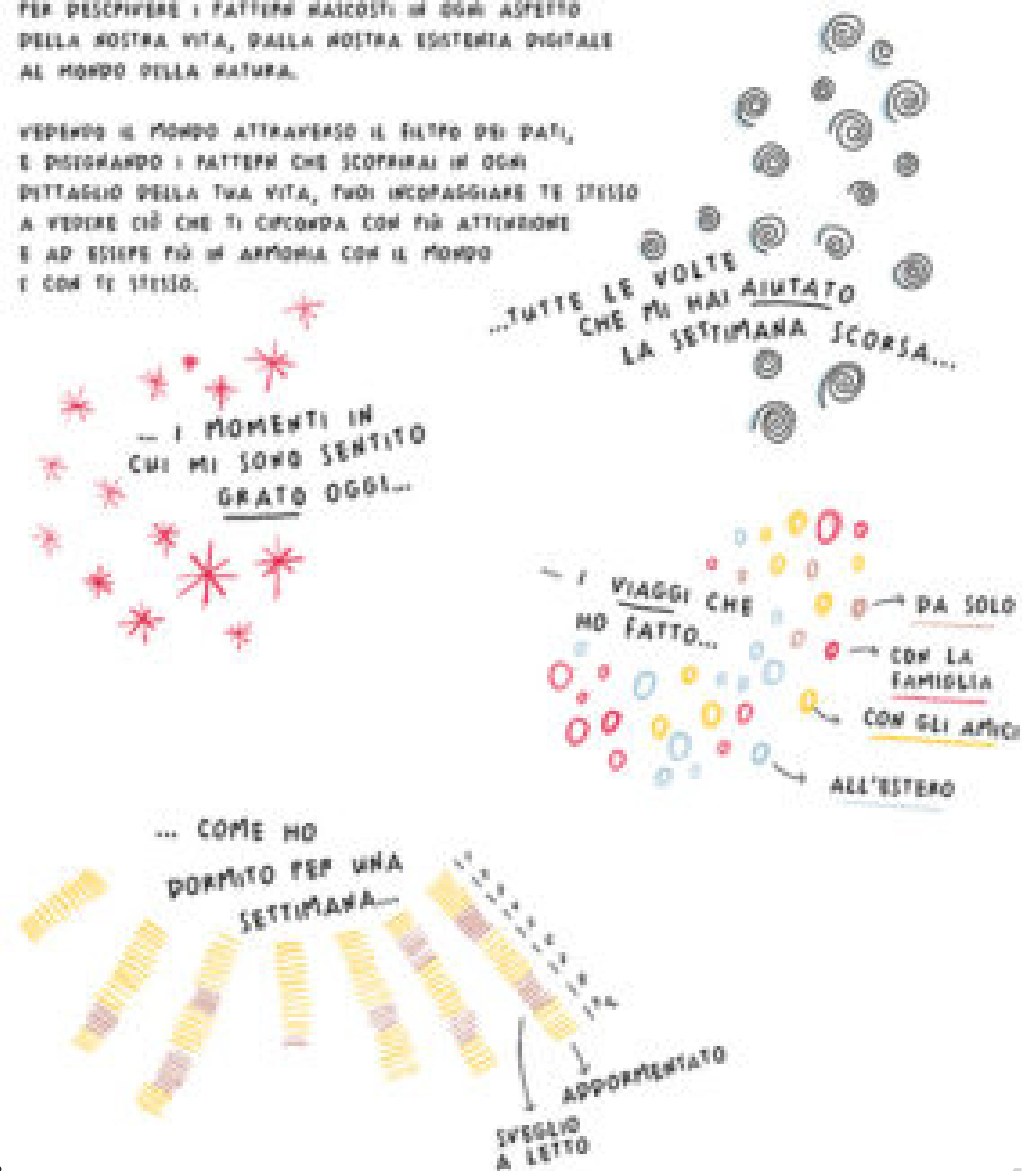 PER DESCRIVERE I PATTERN NASCOSTI IN OGNI ASPETTO
DELLA NOSTRA VITA, DALLA NOSTRA ESISTENZA DIGITALE
AL MONDO DELLA NATURA.
VEDENDO IL MONDO ATTRAVERSO IL FILTRO DEI DATI,
E DISEGNANDO I PATTERN CHE SCOPRIRAI IN OGNI
DETTAGLIO DELLA TUA VITA, PUOI INCORAGGIARE TE STESSO
A VEDERE CIÒ CHE TI CIRCONDA CON PIÙ ATTENZIONE
E AD ESSERE PIÙ IN ARMONIA CON IL MONDO
E CON TE STESSO.
...TUTTE LE VOLTE
CHE MI HAI AIUTATO
LA SETTIMANA SCORSA...
... I MOMENTI IN
CUI MI SONO SENTITO
GRATO OGGI...
... I VIAGGI CHE
HO FATTO...
DA SOLO
CON LA
FAMIGLIA
CON GLI AMICI
ALL'ESTERO
... COME HO
DORMITO PER UNA
SETTIMANA...
ADDORMENTATO
SVEGLIO
A LETTO